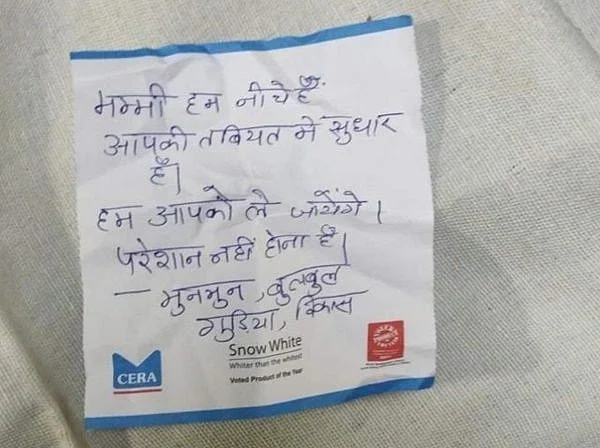 मम्मी हम नीचे हैं
आपकी तबियत मे सुधार
हैं।
हम आपको ले जायेंगे।
परेशान नहीं होना है।
— मुनमुन, बुलबुल
गुड़िया, विकास
CERA
Snow White
Whiter than the whitest
Voted Product of the Year